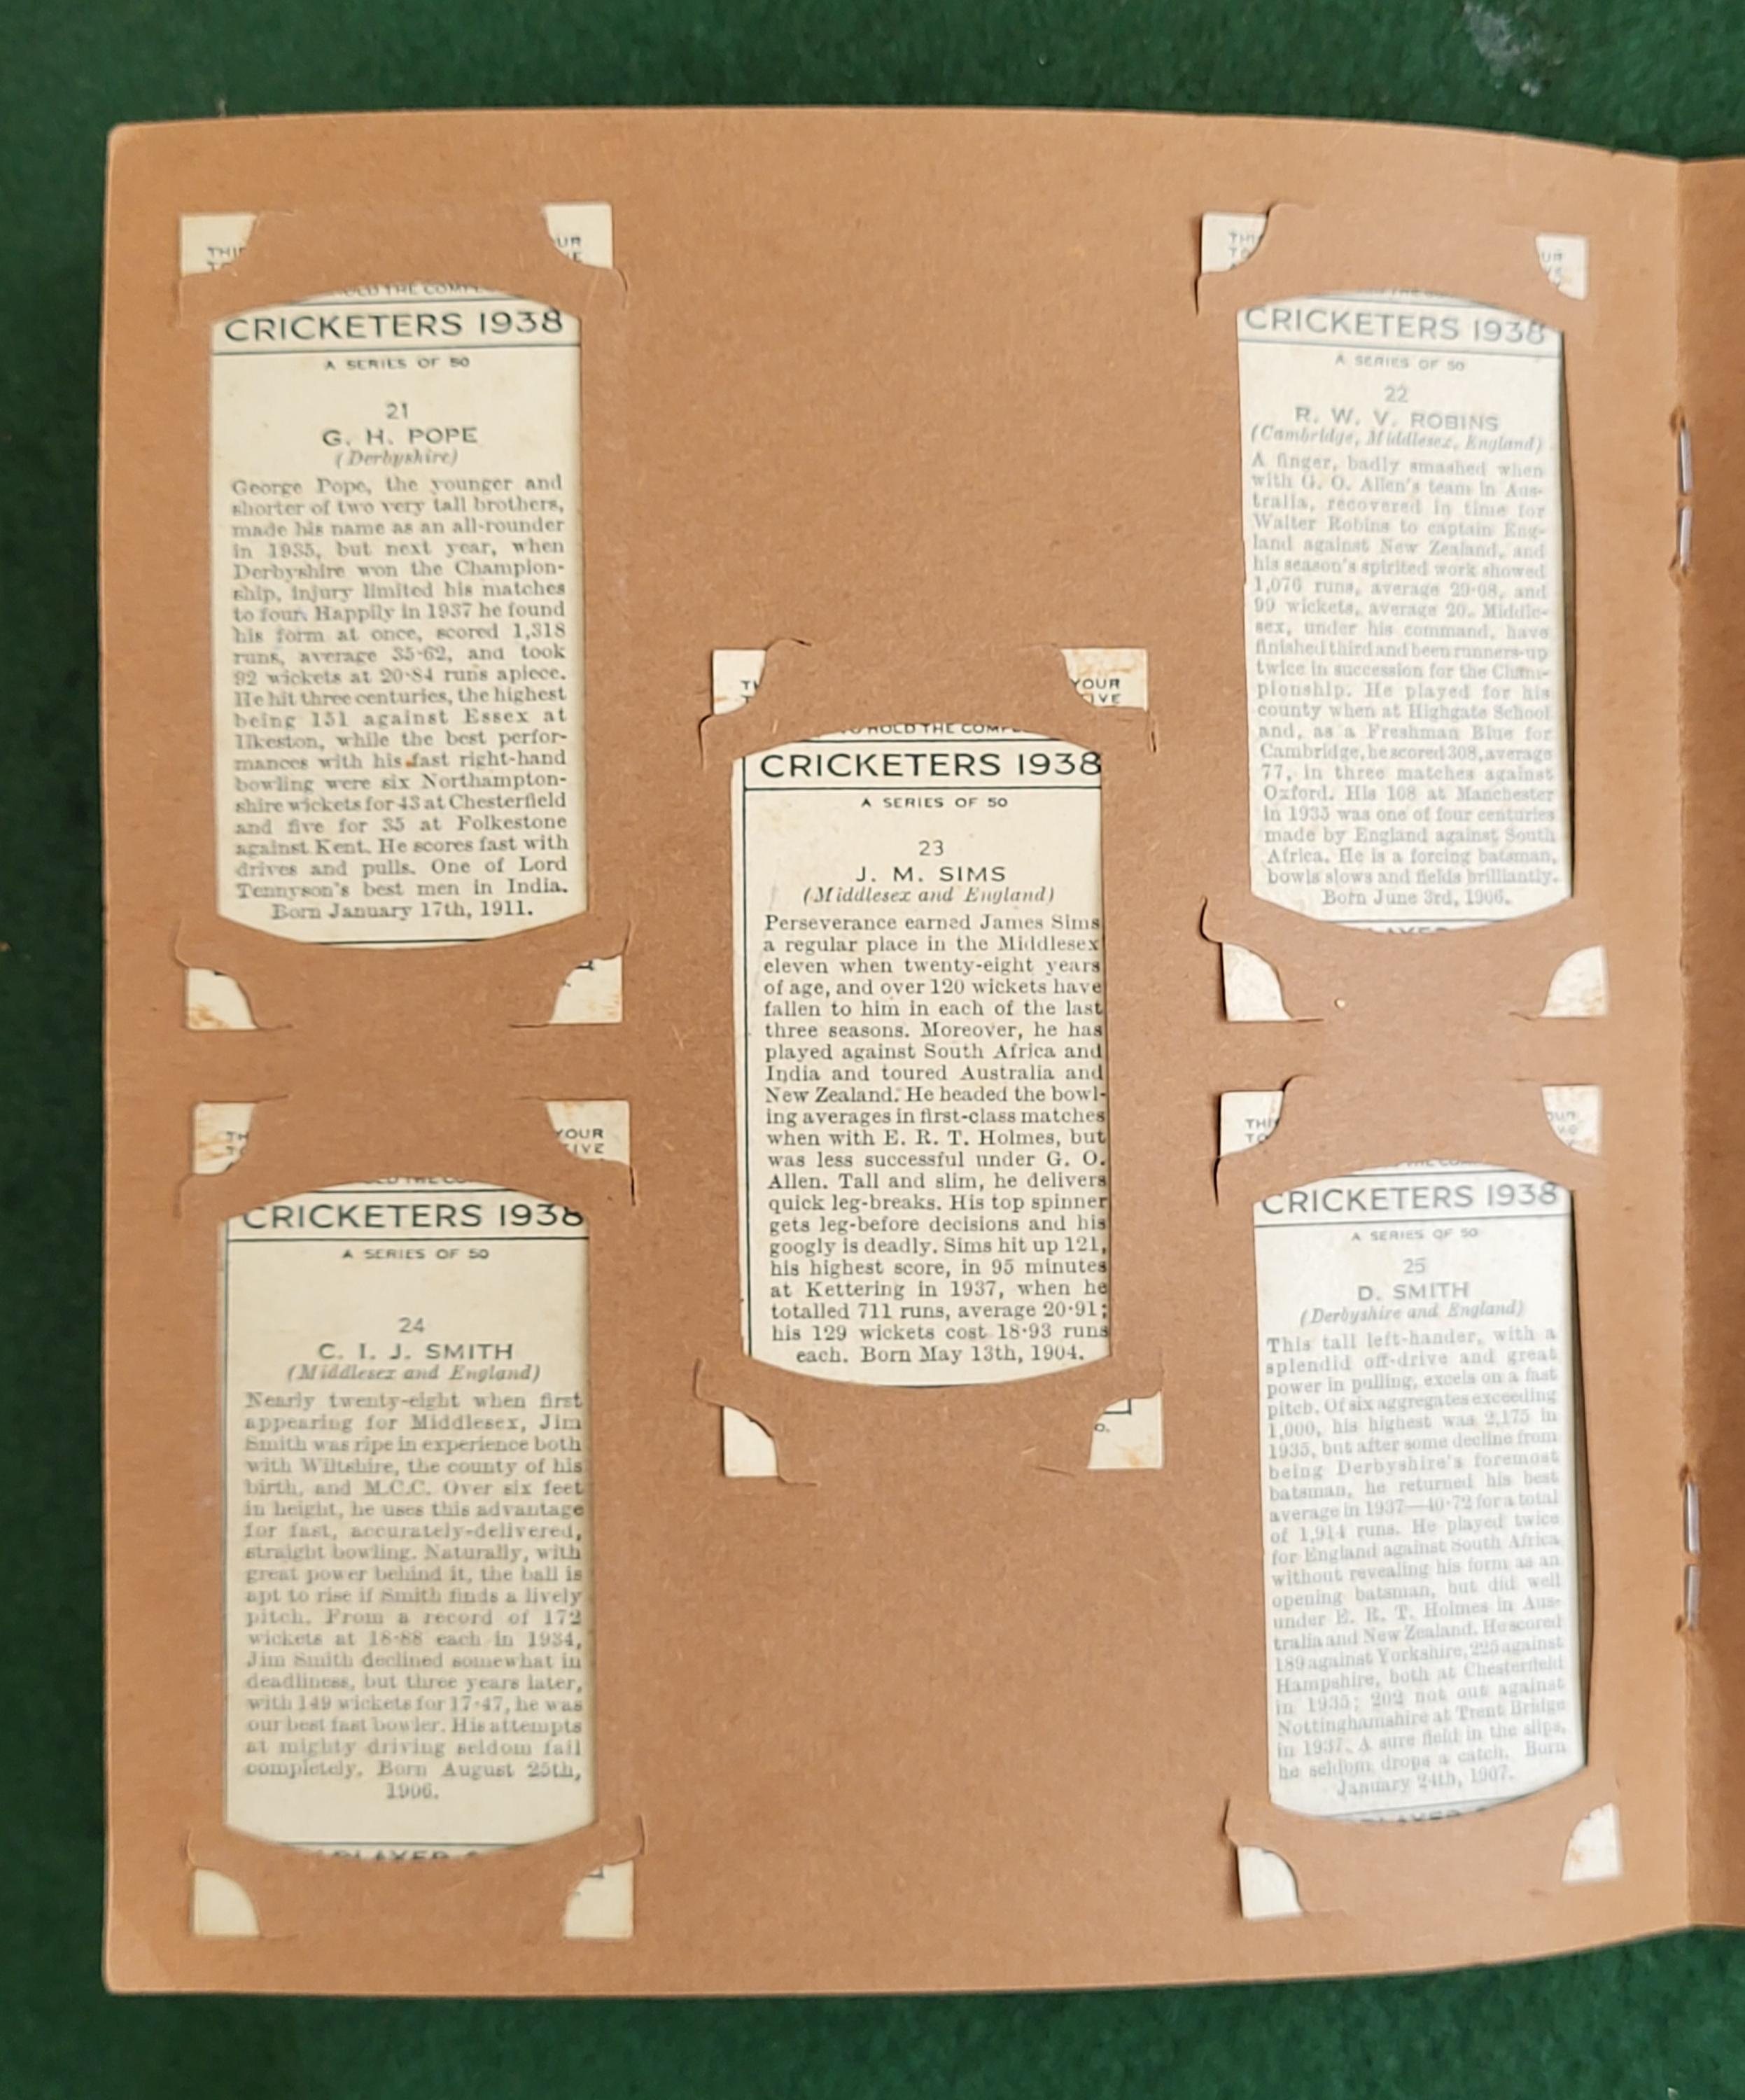 THIS
UR
TO
E
OLD THE COMPL
CRICKETERS 1938
A SERIES OF 50
21
G. H. POPE
(Derbyshire)
George Pope, the younger and
shorter of two very tall brothers,
made his name as an all-rounder
in 1935, but next year, when
Derbyshire won the Champion-
ship, injury limited his matches
to four. Happily in 1937 he found
his form at once, scored 1,318
runs, average 35·62, and took
92 wickets at 20·84 runs apiece.
He hit three centuries, the highest
being 151 against Essex at
Ilkeston, while the best perfor-
mances with his fast right-hand
bowling were six Northampton-
shire wickets for 43 at Chesterfield
and five for 35 at Folkestone
against Kent. He scores fast with
drives and pulls. One of Lord
Tennyson's best men in India.
Born January 17th, 1911.
THI
UR
TO
VE
CRICKETERS 1938
A SERIES OF 50
22
R. W. V. ROBINS
(Cambridge, Middlesex, England)
A finger, badly smashed when
with G. O. Allen's team in Aus-
tralia, recovered in time for
Walter Robins to captain Eng-
land against New Zealand, and
his season's spirited work showed
1,076 runs, average 29·08, and
99 wickets, average 20. Middle-
sex, under his command, have
finished third and been runners-up
twice in succession for the Cham-
pionship. He played for his
county when at Highgate School
and, as a Freshman Blue for
Cambridge, he scored 308, average
77, in three matches against
Oxford. His 108 at Manchester
in 1935 was one of four centuries
made by England against South
Africa. He is a forcing batsman,
bowls slows and fields brilliantly.
Born June 3rd, 1906.
PLAYER
TH
YOUR
IVE
TO HOLD THE COMPL
CRICKETERS 1938
A SERIES OF 50
23
J. M. SIMS
(Middlesex and England)
Perseverance earned James Sims
a regular place in the Middlesex
eleven when twenty-eight years
of age, and over 120 wickets have
fallen to him in each of the last
three seasons. Moreover, he has
played against South Africa and
India and toured Australia and
New Zealand. He headed the bowl-
ing averages in first-class matches
when with E. R. T. Holmes, but
was less successful under G. O.
Allen. Tall and slim, he delivers
quick leg-breaks. His top spinner
gets leg-before decisions and his
googly is deadly. Sims hit up 121,
his highest score, in 95 minutes
at Kettering in 1937, when he
totalled 711 runs, average 20·91;
his 129 wickets cost 18·93 runs
each. Born May 13th, 1904.
O.
TH
YOUR
TO
IVE
OLD THE CO
CRICKETERS 1938
A SERIES OF 50
24
C. I. J. SMITH
(Middlesex and England)
Nearly twenty-eight when first
appearing for Middlesex, Jim
Smith was ripe in experience both
with Wiltshire, the county of his
birth, and M.C.C. Over six feet
in height, he uses this advantage
for fast, accurately-delivered,
straight bowling. Naturally, with
great power behind it, the ball is
apt to rise if Smith finds a lively
pitch. From a record of 172
wickets at 18·88 each in 1934,
Jim Smith declined somewhat in
deadliness, but three years later,
with 149 wickets for 17·47, he was
our best fast bowler. His attempts
at mighty driving seldom fail
completely. Born August 25th,
1906.
PLAYER
THI
OUR
TO
VE
CRICKETERS 1938
A SERIES OF 50
25
D. SMITH
(Derbyshire and England)
This tall left-hander, with a
splendid off-drive and great
power in pulling, excels on a fast
pitch. Of six aggregates exceeding
1,000, his highest was 2,175 in
1935, but after some decline from
being Derbyshire's foremost
batsman, he returned his best
average in 1937—40·72 for a total
of 1,914 runs. He played twice
for England against South Africa
without revealing his form as an
opening batsman, but did well
under E. R. T. Holmes in Aus-
tralia and New Zealand. He scored
189 against Yorkshire, 225 against
Hampshire, both at Chesterfield
in 1935; 202 not out against
Nottinghamshire at Trent Bridge
in 1937. A sure field in the slips,
he seldom drops a catch. Born
January 24th, 1907.
PLAYER